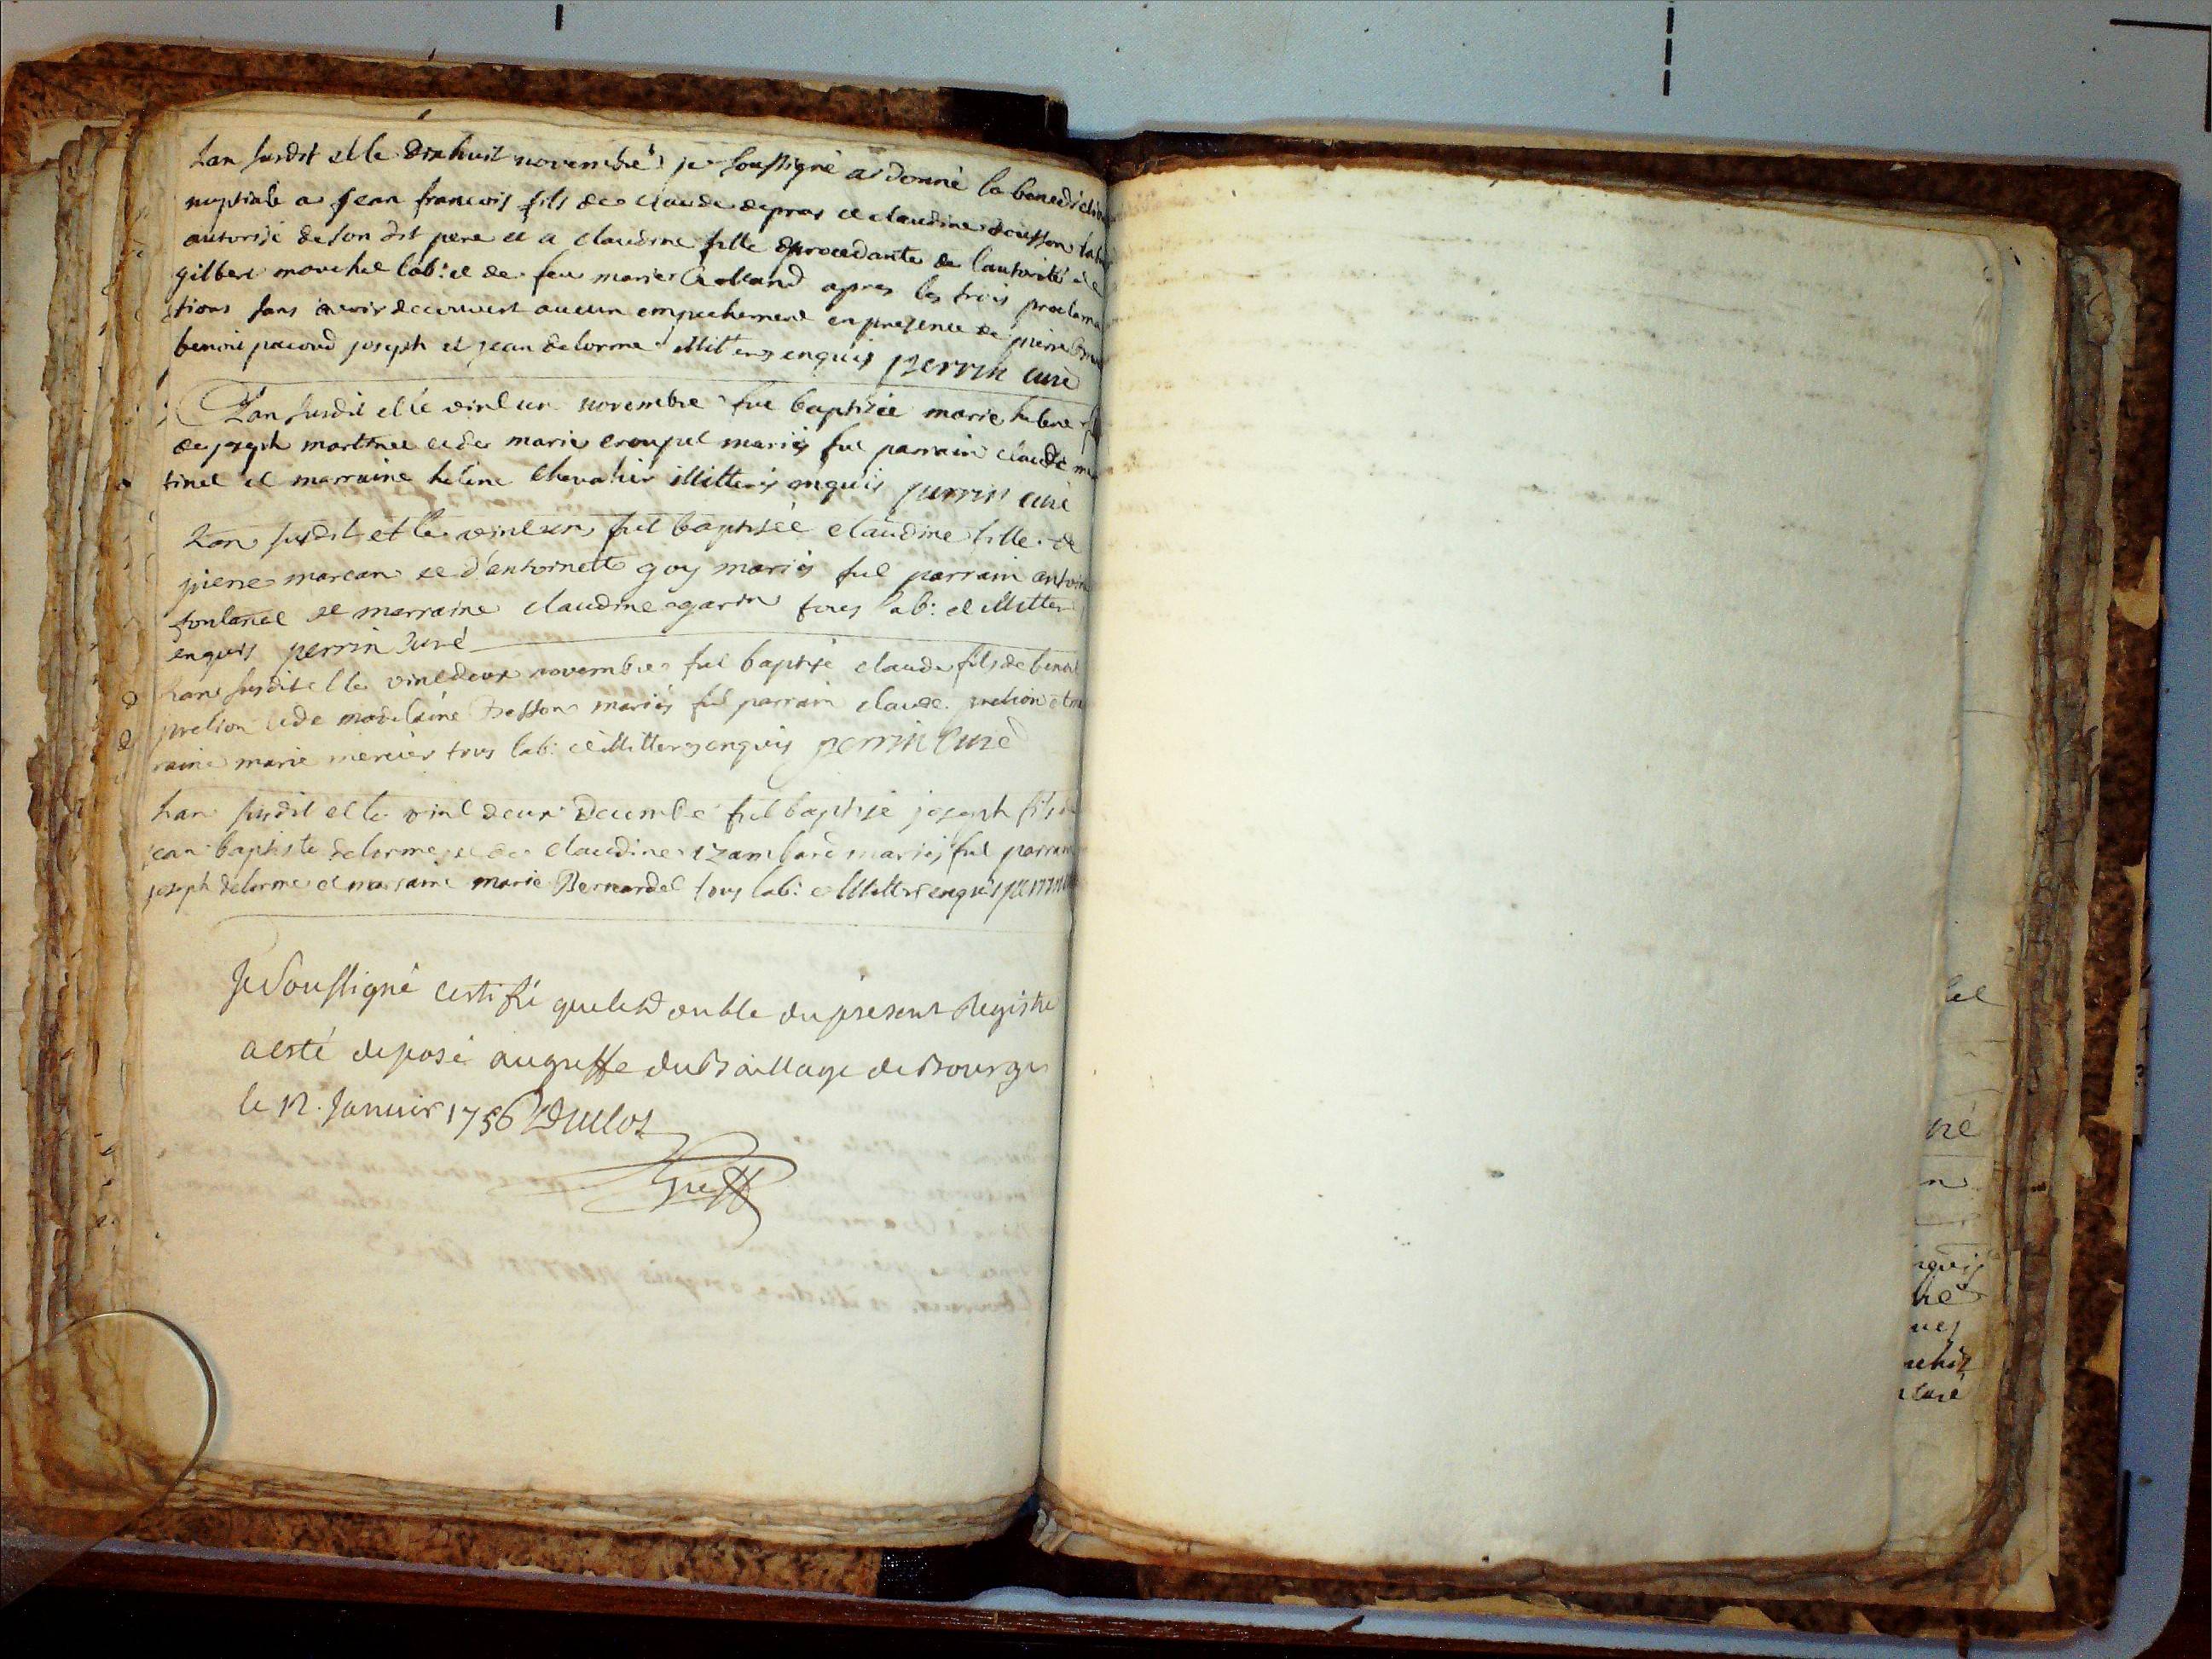 Lan susdit et le dixhuit novembre je soussigné ai donné la benedictio
nuptiale a jean francois fils de claude depras et claudine
autorisé de son dit pere et a claudine fille procedante de lautorité de
gilbert marchel lab: et de feu marie Rolland apres les trois proclama
tions sans avoir decouvert aucun empechement en presence de pierre
benoit pacoud joseph et jean delorme illit enquis perrin curé
Lan susdit et le vint un novembre fut baptisée marie helene
de joseph martinet et de marie croupet mariés fut parrain claude mar
tinet et marraine helene chevalier illitterés enquis perrin curé
Lan susdit et le vint un fut baptisée claudine fille de
pierre marcan et d'antoinette goy mariés fut parrain antoine
fontanel et marraine claudine garin tous lab: et illitter
enquis perrin curé
Lan susdit et le vint deux novembre fut baptisé claude fils de benoit
prelion et de madelaine mariés fut parrain claude prelion et mar
raine marie mercier tous lab: et illitterés enquis perrin curé
Lan susdit et le vint deux decembe fut baptisé joseph fils
jean baptiste delorme et de claudine izambard mariés fut parrain
joseph delorme et marraine marie Bernardet tous lab: et illitter enquis perrin
Je Soussigné certifie que le Double du present Registre
a esté deposé au greffe du Baillage de Bourg
le 12. Janvier 1756 Duclos
Greff
tel
né
n
nquis
he
ues
curé